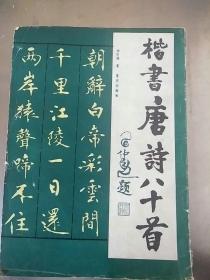 楷書唐詩八十首
朝辭白帝彩雲間
千里江陵一日還
兩岸猿聲啼不住
題